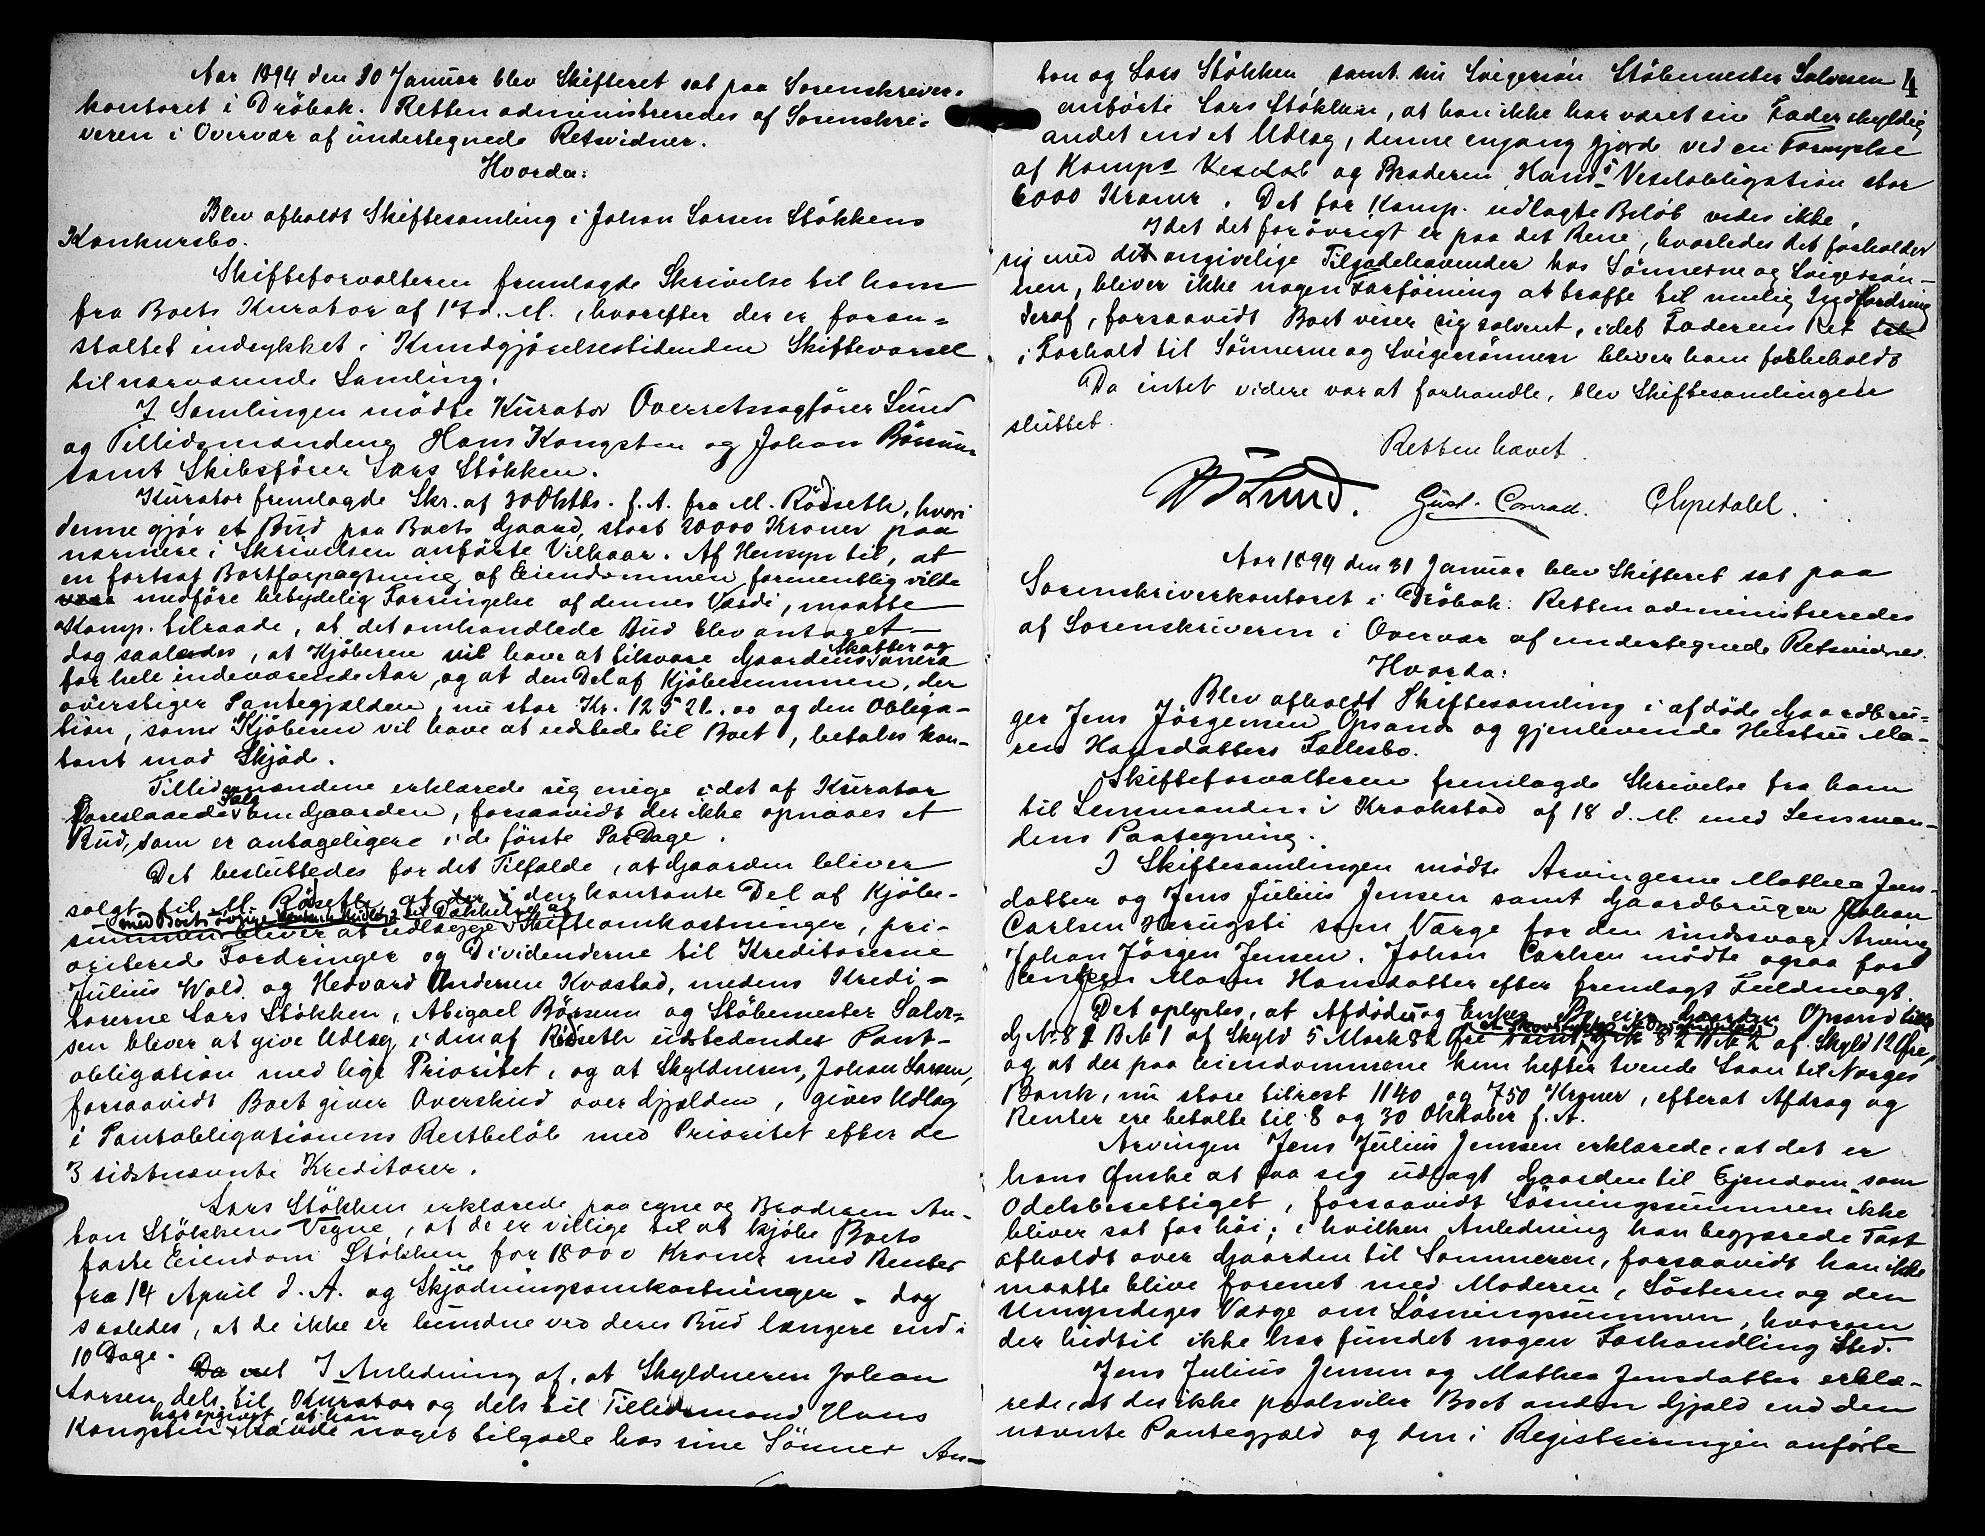 Aar 1894 den 30 Januar blev Skifteret sat paa Sorenskriver-
kontoret i Dröbak. Retten administreredes af Sorenskri-
veren i Overvær af undertegnede Retsvidner.
Hvorda:
Blev afholdt Skiftesamling i Johan Larsen Stökkens
Konkursbo.
Skifteforvalteren fremlagde Skrivelse til ham
fra Boets Kurator af 17 d. M., hvorefter der er foran-
staltet indrykket i Kundgjörelsestidenden Skiftevarsel
til nærværende Samling.
I Samlingen mödte Kurator Overretssagförer Lund
og Tillidsmændene Hans Kongsten og Johan Börsum
samt Skibsförer Lars Stökken.
Kurator fremlagde Skr. af 30 Oktbr. f. A. fra M. Rödseth, hvori
denne gjör et Bud paa Boets Gaard, stort 20000 Kroner paa
nærmere i Skrivelsen anförte Vilkaar. Af Hensyn til, at
en fortsat Bortforpagtning af Eiendommen formentlig vilde
medföre betydelig Forringelse af dennes Værdi, maatte
Komp. tilraade, at det omhandlede Bud blev antaget -
dog saaledes, at Kjöberen vil have at tilsvare Gaardens Skatter og onera
for hele indeværende Aar, og at den Del af Kjöbesummen, der
överstiger Pantegjælden, nu stor Kr. 12521.00 og den Obliga-
tion, some Kjöberen vil have at udstede til Boet, betales kon-
tant mod Skjöd.
Tillidsmændene erklærede sig enige i det af Kurator
foreslaaede Salg om Gaarden, forsaavidt der ikke opnaaes et
Bud, som er antageligere i de förste Par Dage.
Det besluttedes for det Tilfælde, at Gaarden bliver
solgt til M. Rödseth, at der i den kontante Del af Kjöbe-
med Boets övrige kontante Midler til Dækkelse af
summen bliver at udlægge Skifteomkostninger, pri-
oriterede Fordringer og Dividenderne til Kreditorerne
Julius Wold og Hedvard Andersen Kvæstad, medens Kredi-
torerne Lars Stökken, Abigael Börsum og Stöbemester Salve-
sen bliver at give Udlæg i den af Rödseth udstedendes Pant-
obligation med lige Prioritet, og at Skyldneren, Johan Larsen,
forsaavidt Boet giver Overskud over Gjælden, gives Udlæg
i Pantobligationens Restbelöb med Prioritet efter de
3 sidstnævnte Kreditorer.
Lars Stökken erklærede paa egne og Broderen An-
ton Stökkens Vegne, at de er villige til at kjöbe Boets
faste Eiendom Stökken for 18000 Kroner med Renter
fra 14 April d. A. og Skjödningsomkostninger - dog
saaledes, at de ikke er bundne ved deres Bud længere end i
10 Dage.
Da vel I Anledning af, at Skyldneren Johan
Larsen dels til Kurator og dels til Tillidsmand Hans
har opgivet, at han
Kongsten havde noget tilgode hos sine Sönner An-
4
ton og Lars Stökken samt sin Svigersön Stöbemester Salvesen
anförte Lars Stökken, at han ikke har været sin Fader skyldig
andet end et Udlæg, denne engang gjorde ved en Fornyelse
af Komps Vexel og Broderen Hans's Vexelobligation stor
6000 Kroner. Det for Komp. udlagte Belöb vides ikke.
Idet det for övrigt er paa det Rene, hvorledes det forholder
sig med det angivelige Tilgodehavender hos Sönnerne og Svigersön-
nen, bliver ikke nogen Forföining at træffe til mulig Inddrivning
deraf, forsaavidt Boet viser sig solvent, idet Faderens Ret til
i Forhold til Sönnerne og Svigersönnen bliver ham forbeholdt
Da intet videre var at forhandle, blev Skiftesamlingen
sluttet.
Retten hævet.
Lund. Gust. Conrad.
Aar 1894 den 31 Januar blev Skifteret sat paa
Sorenskriverkontoret i Dröbak. Retten administreredes
af Sorenskriveren i Overvær af undertegnede Retsvidner.
Hvorda:
Blev afholdt Skiftesamling i afdöde Gaardbru-
ger Jens Jörgensen Opsand og gjenlevende Hustru Ma-
ren Hansdatters Fællesbo.
Skifteforvalteren fremlagde Skrivelse fra ham
til Lensmanden i Kraakstad af 18 d. M. med Lensman-
dens Paategning.
I Skiftesamlingen mödte Arvingerne Mathea Jens-
datter og Jens Julius Jensen samt Gaardbruger Johan
Carlsen Haugsti som Værge for den sindssvage Arving
Johan Jörgen Jensen. Johan Carlsen mödte ogsaa for
Enken Maren Hansdatter efter fremlagt Fuldmagt.
Det oplystes, at Afdöde og Enken eier Gaarden Opsand lille
G. No 81 B. No 1 af Skyld 5 Mark 82 Öre samt G. No 82 B. No 2 af Skyld 12 Öre,
og at der paa Eiendommene kun hefter tvende Laan til Norges
Bank, nu store tilrest 1140 og 750 Kroner, efterat Afdrag og
Renter ere betalte til 8 og 30 Oktober f. A.
Arvingen Jens Julius Jensen erklærede, at det er
hans Önske at faa sig udlagt Gaarden til Ejendom som
Odelsberettiget, forsaavidt Lösningssummen ikke
bliver sat for höi; i hvilken Anledning han begjærede Taxt
afholdt over Gaarden til Sommeren, forsaavidt han ikke
maatte blive forenet med Moderen, Sösteren og den
Umyndiges Værge om Lösningssummen, hvorom
der hidtil ikke har fundet nogen Forhandling Sted.
Jens Julius Jensen og Mathea Jensdatter erklæ-
rede, at der ikke paahviler Boet anden Gjæld end den
nævnte Pantegjæld og den i Registreringen anförte